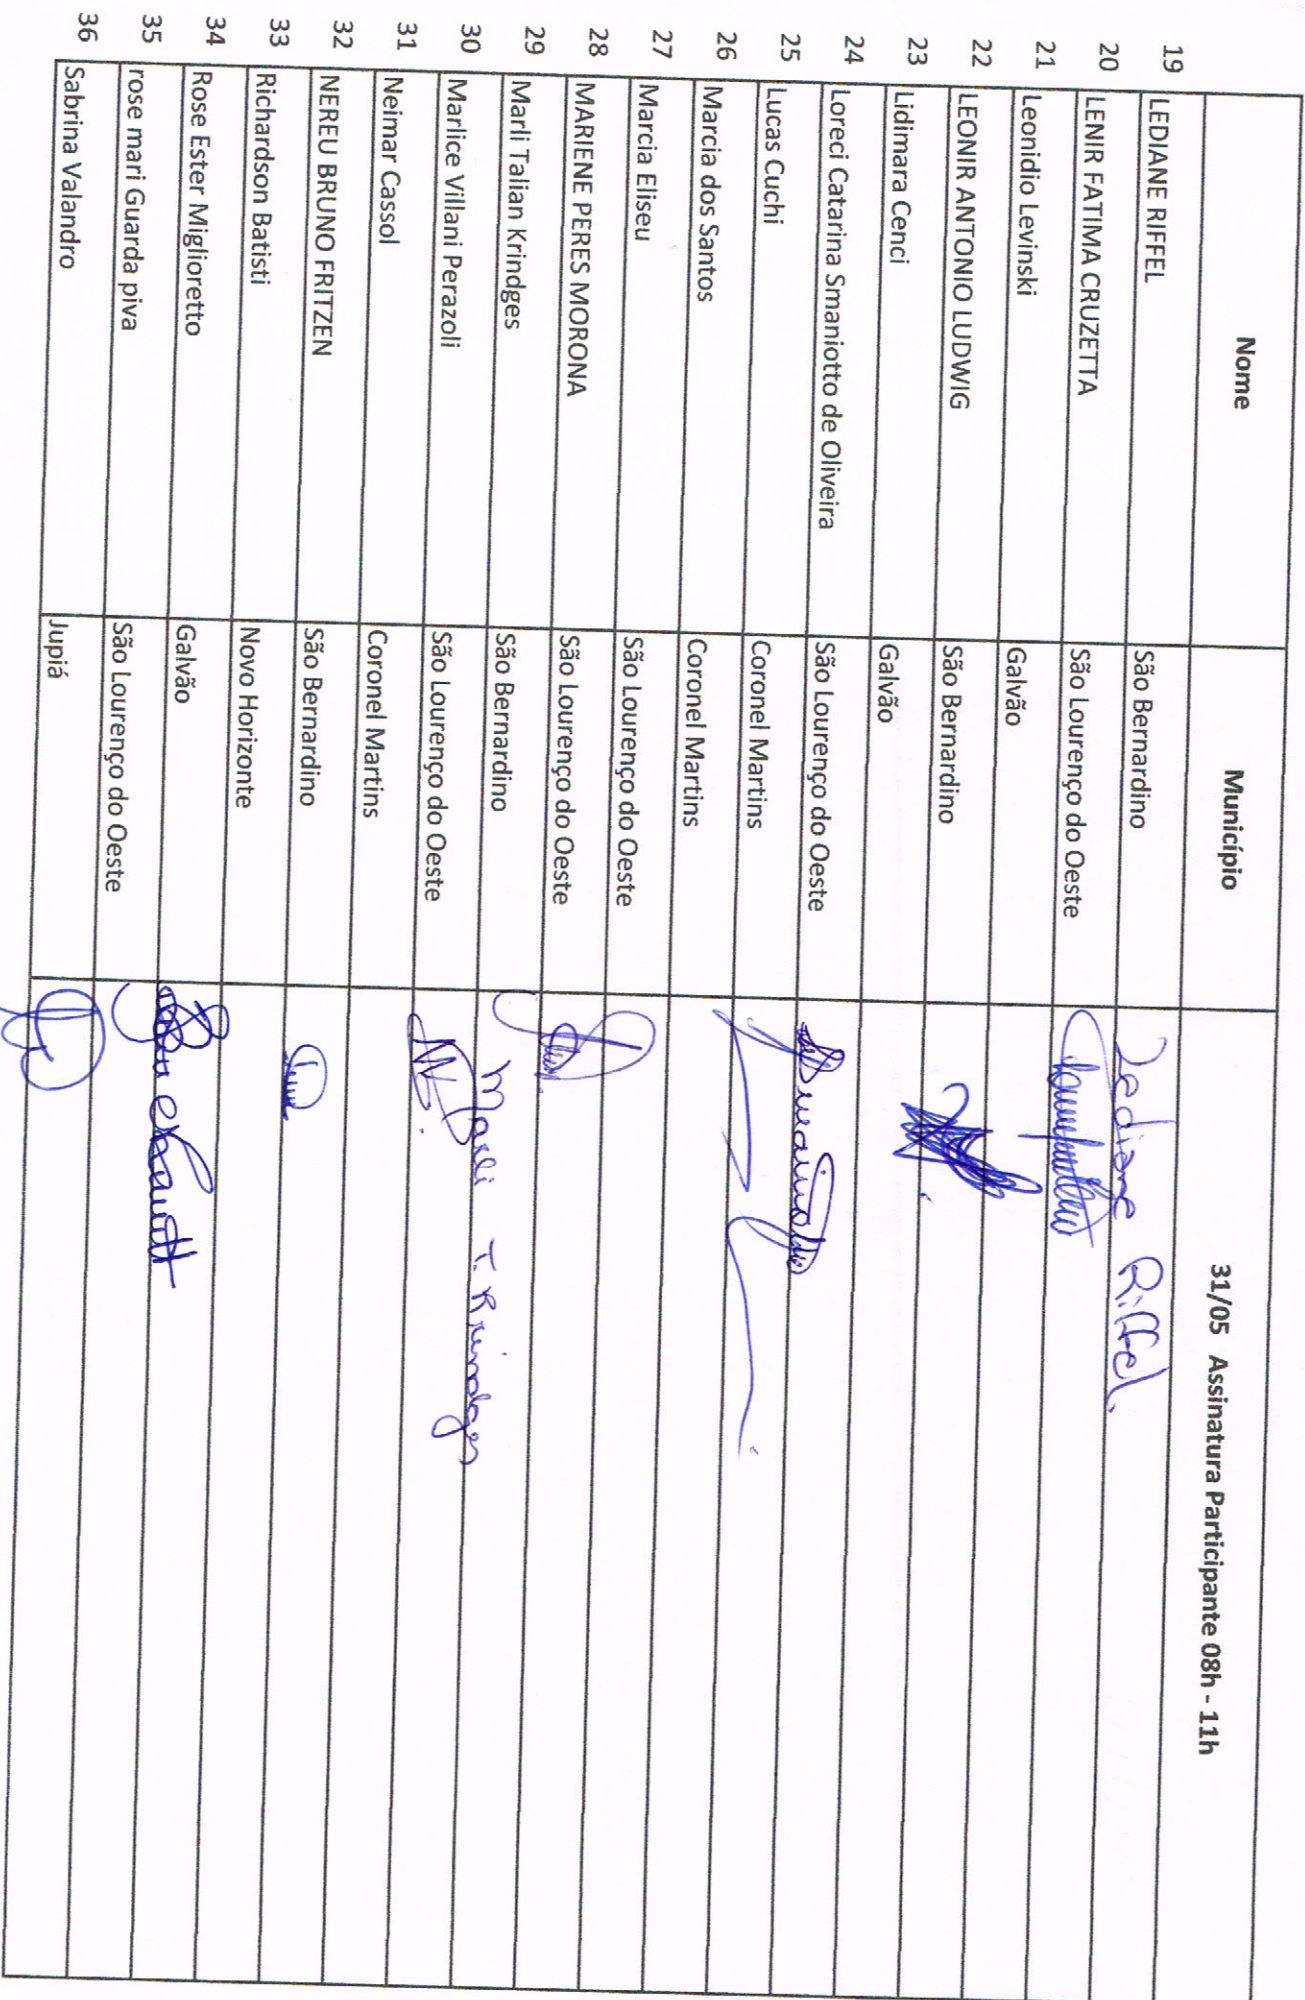 Nome Município 31/05 Assinatura Participante 08h - 11h
19 LEDIANE RIFFEL São Bernardino Lediane Riffel.
20 LENIR FATIMA CRUZETTA São Lourenço do Oeste
21 Leonidio Levinski Galvão
22 LEONIR ANTONIO LUDWIG São Bernardino
23 Lidimara Cenci Galvão
24 Loreci Catarina Smaniotto de Oliveira São Lourenço do Oeste
25 Lucas Cuchi Coronel Martins
26 Marcia dos Santos Coronel Martins
27 Marcia Eliseu São Lourenço do Oeste
28 MARIENE PERES MORONA São Lourenço do Oeste
29 Marli Talian Krindges São Bernardino Marli T. Krindges
30 Marlice Villani Perazoli São Lourenço do Oeste
31 Neimar Cassol Coronel Martins
32 NEREU BRUNO FRITZEN São Bernardino
33 Richardson Batisti Novo Horizonte
34 Rose Ester Miglioretto Galvão
35 rose mari Guarda piva São Lourenço do Oeste
36 Sabrina Valandro Jupiá